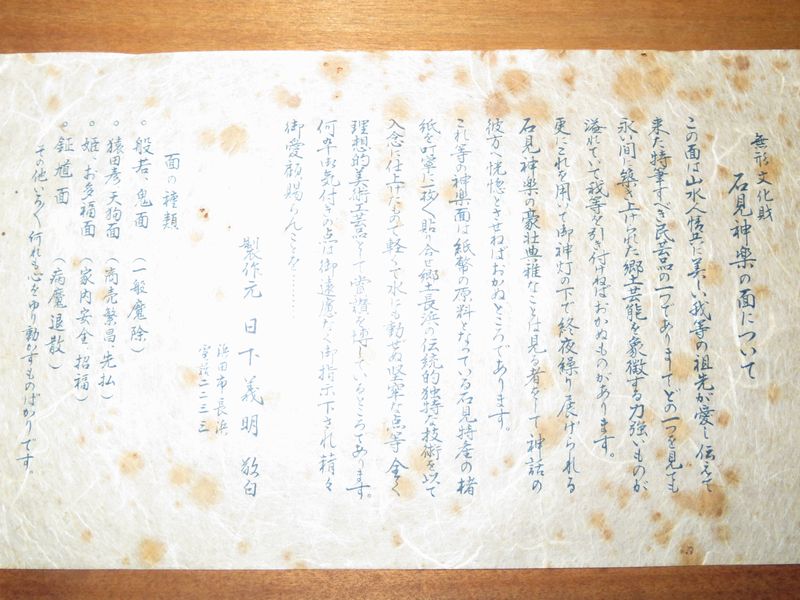 無形文化財
石見神楽の面について
この面は山水人情共に美しい我等の祖先が愛し伝えて
来た特筆すべき民芸品の一つでありましてどの一つを見ても
永い間に築き上げられた郷土芸能を象徴する力強いものが
溢れていて我等を引き付けねばおかぬものがあります。
更にこれを用いて御神灯の下で終夜繰り展げられる
石見神楽の豪壮典雅なことは見る者をして神話の
彼方へ恍惚とさせねばおかぬところであります。
これ等の神楽面は紙幣の原料となっている石見特産の楮
紙を丁寧に一枚々々貼り合せ郷土長浜の伝統的独特な技術を以て
入念に仕上げたもので軽くて水にも動ぜぬ堅牢な点等全く
理想的美術工芸品として賞讃を博しているところであります。
何卒御気付きの点は御遠慮なく御指示下され精々
御愛顧賜らんことを……
製作元 日下義明 敬白
浜田市長浜
電話二二三三
面の種類
○般若、鬼面 (一般魔除)
○猿田彦天狗面 (商売繁昌、先払)
○姫、お多福面 (家内安全 招福)
○鍾馗面 (病魔退散)
その他いろ〱何れも心をゆり動かすものばかりです。